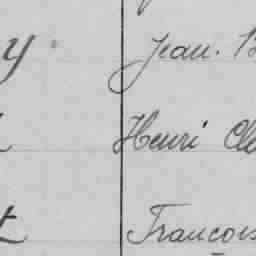 y Jean. B
Henri Cl
t François